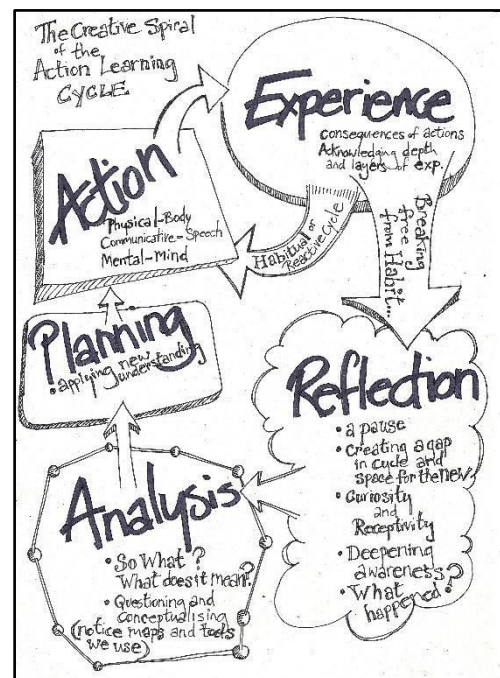 The Creative Spiral
of the
Action Learning
CYCLE
Experience
consequences of actions
Acknowledging depth
and layers of exp.
Action
Physical-Body
Communicative-Speech
Mental-Mind
Habitual or
Reactive Cycle
Breaking
free
from Habit...
Planning
• applying new
understanding
Reflection
• a pause
• Creating a gap
in cycle and
space for the new
• Curiosity
and
Receptivity
• Deepening
awareness
• What
happened?
Analysis
• So What?
What does it mean?
• Questioning and
conceptualising
(notice maps and tools
we use)